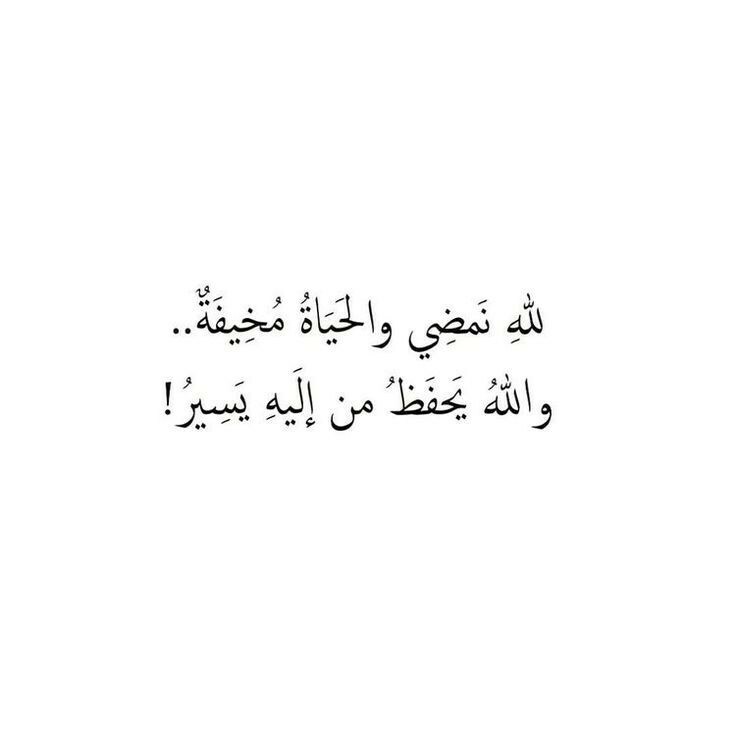 للهِ نَمضِي والحَيَاةُ مُخِيفَةٌ..
واللهُ يَحفَظُ من إلَيهِ يَسِيرُ!